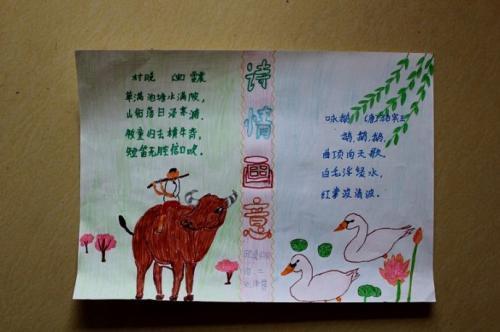 村晚 雷震
草满池塘水满陂，
山衔落日浸寒漪。
牧童归去横牛背，
短笛无腔信口吹。
诗情画意
咏鹅 (唐)骆宾王
鹅，鹅，鹅，
曲项向天歌。
白毛浮绿水，
红掌波清波。